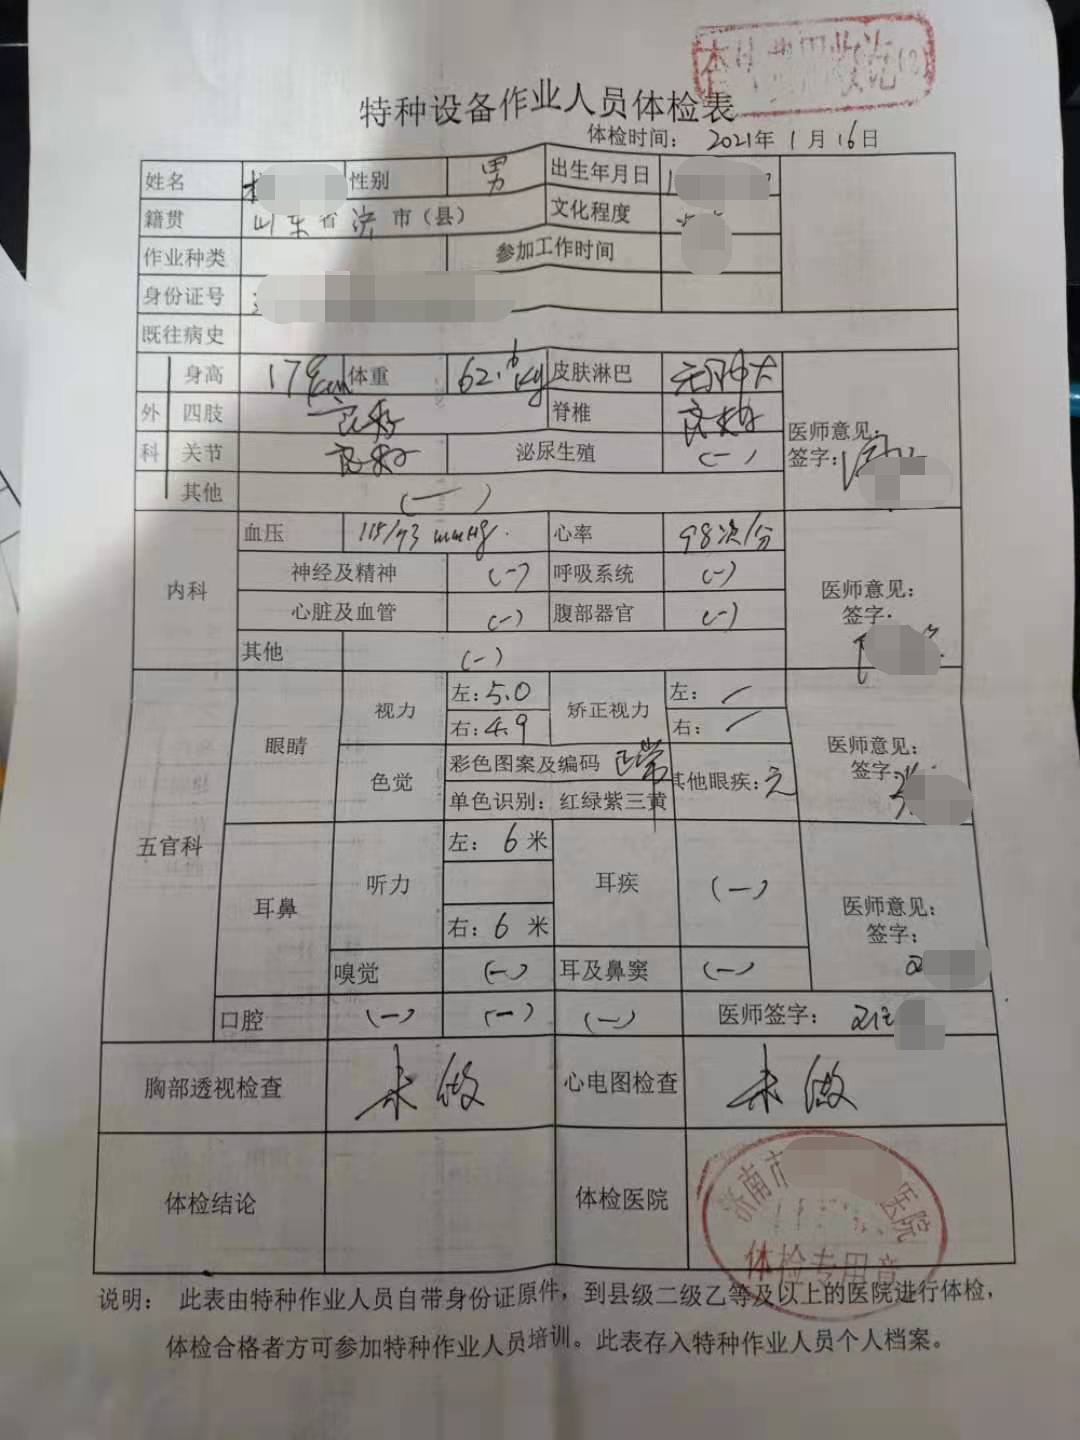 特种设备作业人员体检表
体检时间： 2021年 1 月 16 日
姓名 性别 男 出生年月日
籍贯 山东省济市（县） 文化程度
作业种类 参加工作时间
身份证号
既往病史
外科
身高 体重 62.6kg 皮肤淋巴 无肿大
四肢 良好 脊椎 良好
关节 良好 泌尿生殖 (一)
其他 (一)
医师意见：
签字：
内科
血压 mmHg. 心率 98次/分
神经及精神 (一) 呼吸系统 (一)
心脏及血管 (一) 腹部器官 (一)
其他 (一)
医师意见：
签字：
五官科
眼睛
视力 左：5.0 矫正视力 左： /
右：4.9 右： /
色觉 彩色图案及编码 正常 其他眼疾：无
单色识别：红绿紫三黄
医师意见：
签字：
耳鼻
听力 左： 6 米 耳疾 (一)
右： 6 米
嗅觉 (一) 耳及鼻窦 (一)
医师意见：
签字：
口腔 (一) (一) (一) 医师签字：
胸部透视检查 未做 心电图检查 未做
体检结论 体检医院
济南市 医院
体检专用章
说明： 此表由特种作业人员自带身份证原件，到县级二级乙等及以上的医院进行体检，
体检合格者方可参加特种作业人员培训。此表存入特种作业人员个人档案。